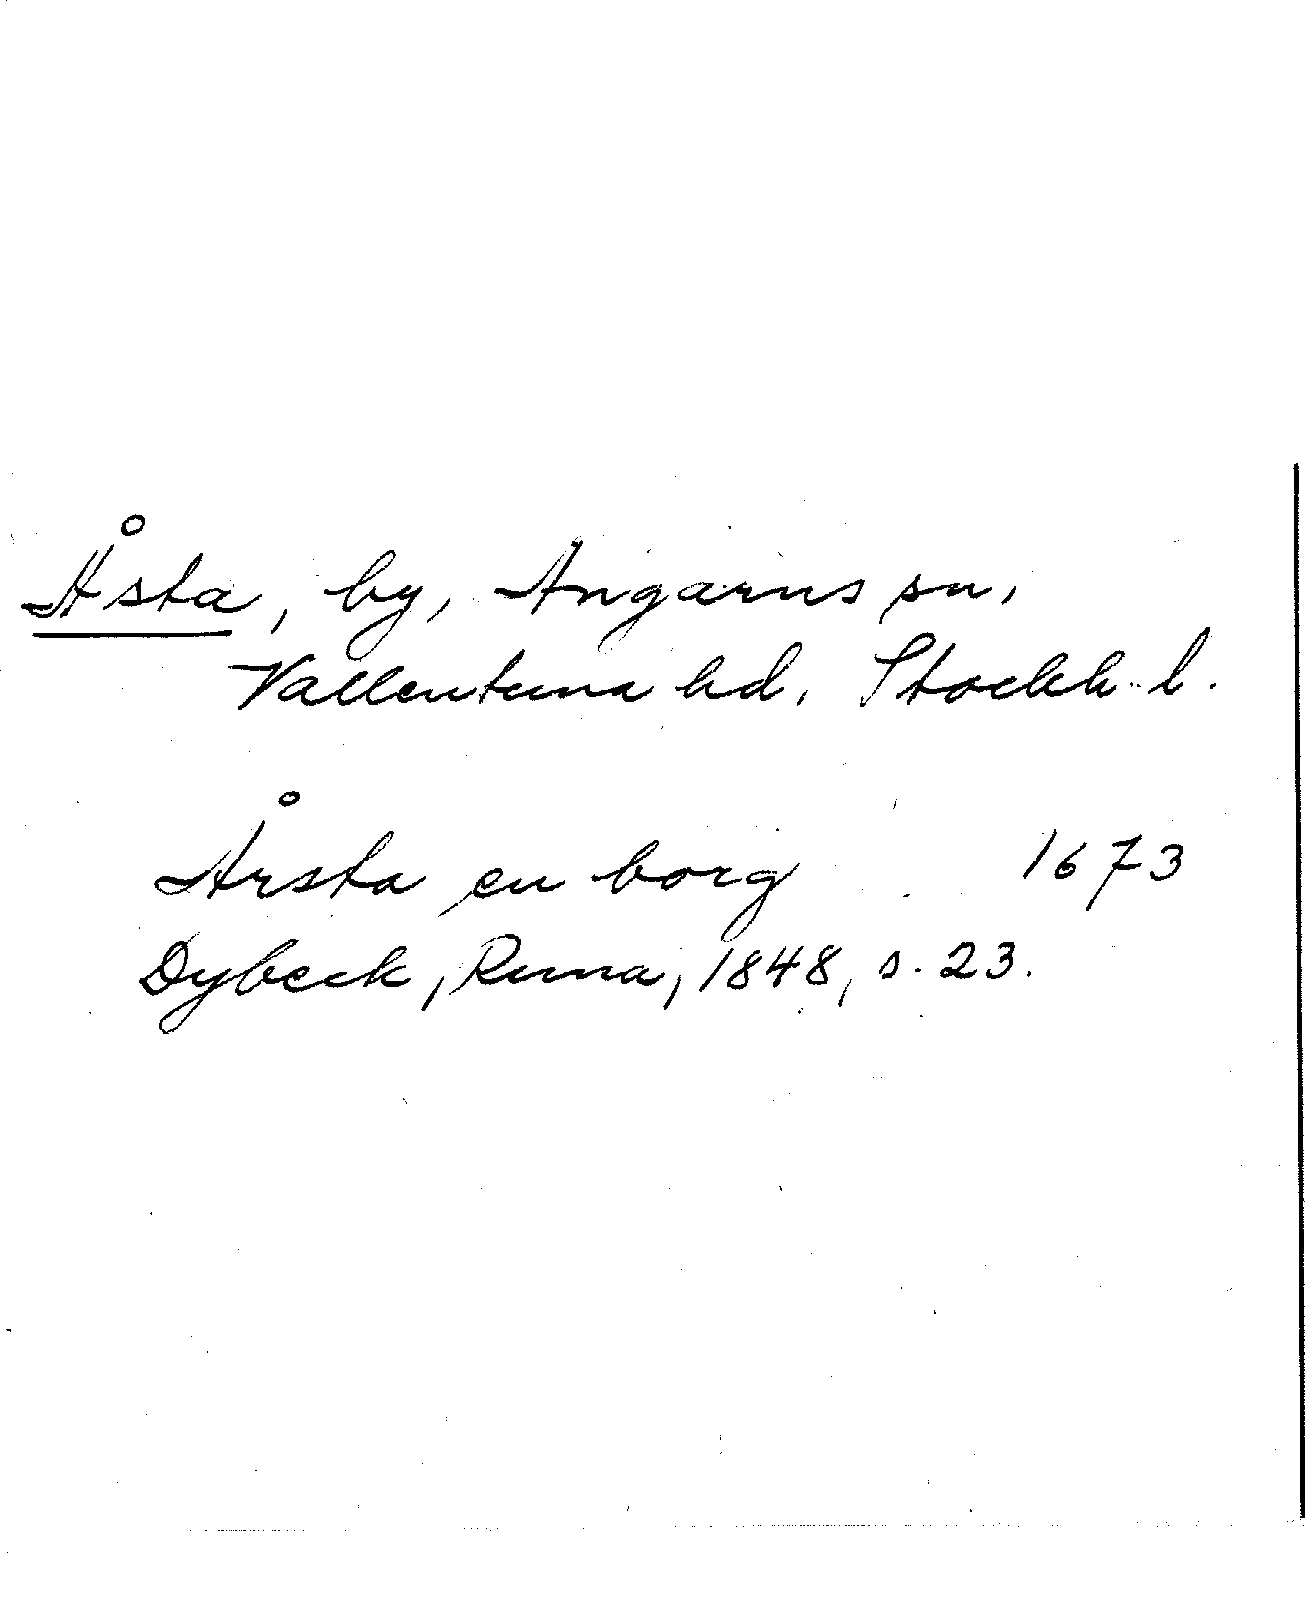 Åsta, by, Angarns sn,
Vallentuna hd, Stockh. l.
Årsta en borg 1673
Dybeck, Runa, 1848, s. 23.